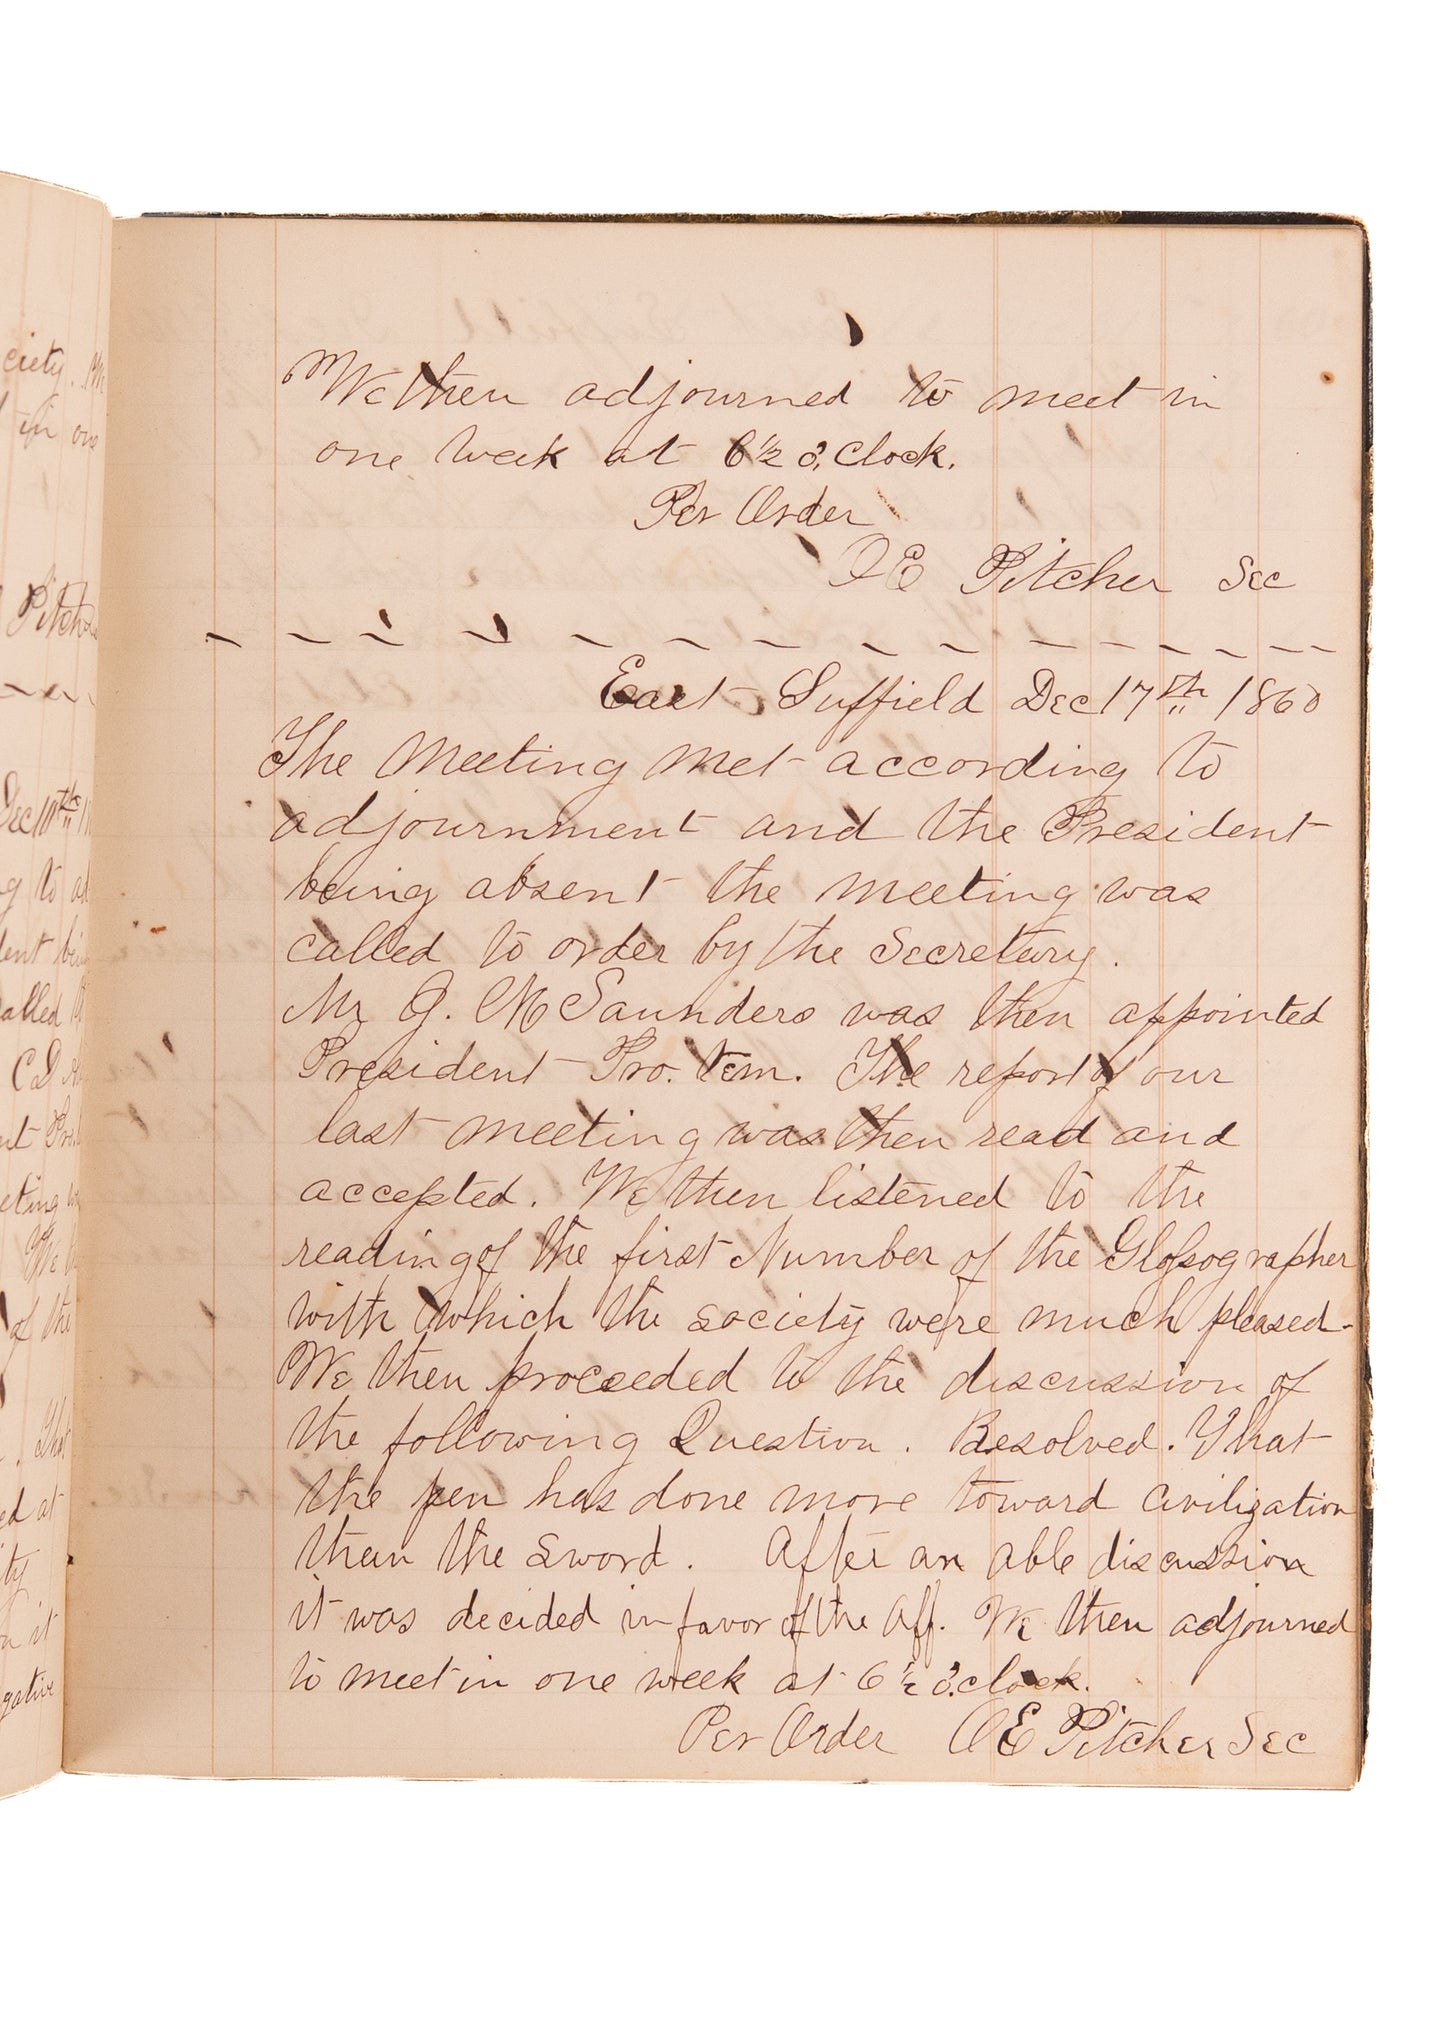 ciety. We
in one
Pitcher
Dec 10th
g to ad
dent bein
called t
C D
nt Pro.
eting w
We
of the
. That
ed at
ity
n it
gative
We then adjourned to meet in
one week at 6½ o,Clock.
Per Order
O E Pitcher Sec
East Suffield Dec 17th 1860
The Meeting met according to
adjournment and the President
being absent the meeting was
called to order by the Secretary.
Mr G. M Saunders was then appointed
President Pro. tem. The report of our
last meeting was then read and
accepted. We then listened to the
reading of the first Number of the Glossographer
with which the society were much pleased-
We then proceeded to the discussion of
the following Question. Resolved. That
the pen has done more toward Civilization
than the Sword. After an able discussion
it was decided in favor of the Aff. We then adjourned
to meet in one week at 6½ o,clock.
Per Order O E Pitcher Sec